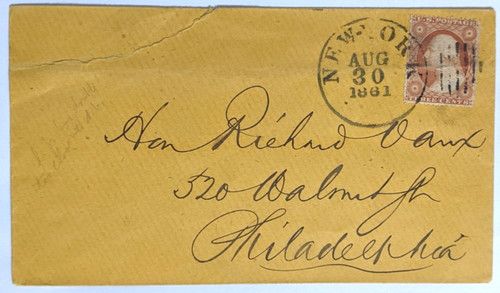 U.S. POSTAGE
NEW-YORK
AUG
30
1861
THREE CENTS
Hon Richard Vaux
520 Walnut St
Philadelphia